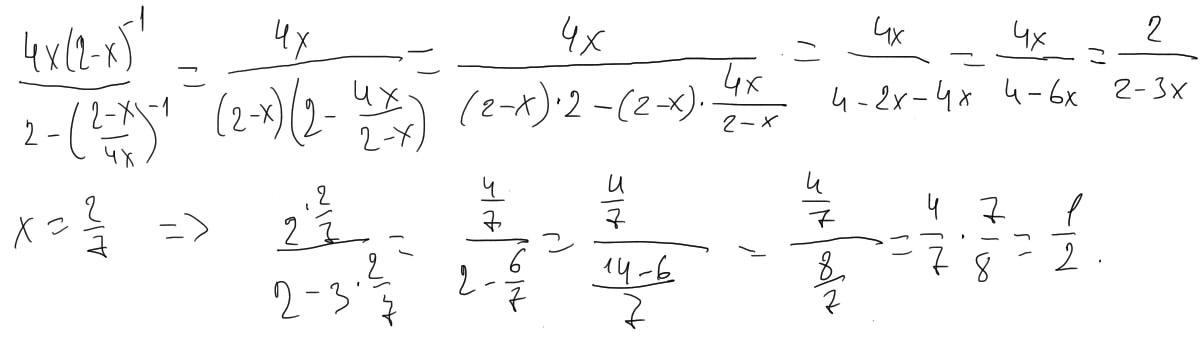 \frac{4x(2-x)^{-1}}{2-\left(\frac{2-x}{4x}\right)^{-1}} = \frac{4x}{(2-x)\left(2-\frac{4x}{2-x}\right)} = \frac{4x}{(2-x)\cdot 2-(2-x)\cdot\frac{4x}{2-x}} = \frac{4x}{4-2x-4x} = \frac{4x}{4-6x} = \frac{2}{2-3x}
x = \frac{2}{7} => \frac{2\cdot\frac{2}{7}}{2-3\cdot\frac{2}{7}} = \frac{\frac{4}{7}}{2-\frac{6}{7}} = \frac{\frac{4}{7}}{\frac{14-6}{7}} = \frac{\frac{4}{7}}{\frac{8}{7}} = \frac{4}{7}\cdot\frac{7}{8} = \frac{1}{2}.